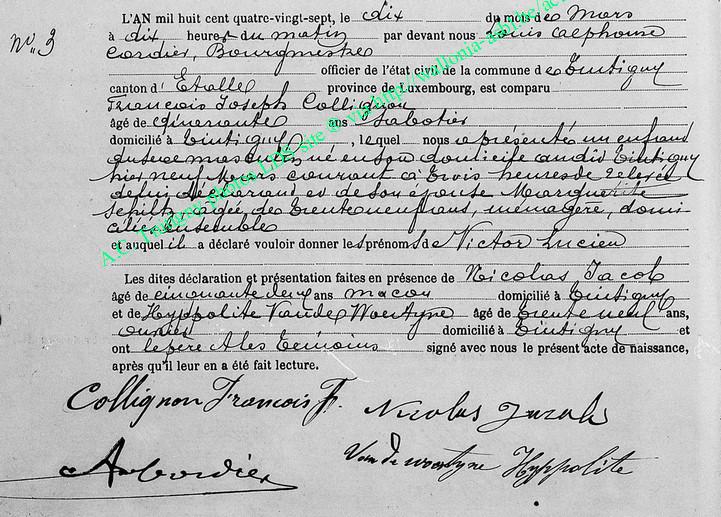 L'AN mil huit cent quatre-vingt-sept, le dix du mois de Mars
N° 3
à dix heures du matin par devant nous Louis Alphonse
Cordier, Bourgmestre
officier de l'état civil de la commune de Tintigny
canton d'Etalle province de Luxembourg, est comparu
François Joseph Collignon
âgé de quarante ans Sabotier
domicilié à Tintigny, lequel nous a présenté un enfant
du sexe masculin, né en son domicile audit Tintigny
hier neuf Mars courant à trois heures de relevée
de lui déclarant et de son épouse Marguerite
Schiltz, âgée de trente neuf ans, ménagère, domi-
ciliés ensemble
et auquel il a déclaré vouloir donner les prénoms de Victor Lucien
Les dites déclaration et présentation faites en présence de Nicolas Jacob
âgé de cinquante deux ans maçon domicilié à Tintigny
et de Hyppolite Vande Woestyne âgé de trente neuf ans,
ouvrier domicilié à Tintigny et
ont le père & les témoins signé avec nous le présent acte de naissance,
après qu'il leur en a été fait lecture.
Collignon François J. Nicolas Jacob
A Cordier Van de woestyne Hyppolite
A.C. Tintigny photos LDS site @ via http://wallonia-asbl.be/ac